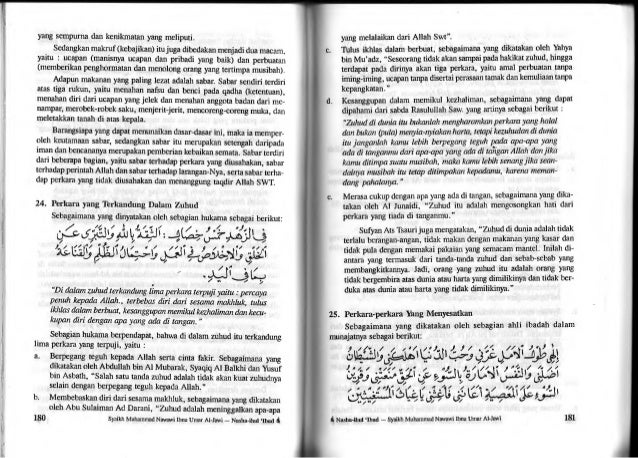 yang sempurna dan kenikmatan yang meliputi.
Sedangkan makruf (kebajikan) itu juga dibedakan menjadi dua macam,
yaitu : ucapan (manisnya ucapan dan pribadi yang baik) dan perbuatan
(memberikan penghormatan dan menolong orang yang tertimpa musibah).
Adapun makanan yang paling lezat adalah sabar. Sabar sendiri terdiri
atas tiga rukun, yaitu menahan nafsu dan benci pada qadha (ketentuan),
menahan diri dari ucapan yang jelek dan menahan anggota badan dari me-
nampar, merobek-robek saku, menjerit-jerit, mencoreng-coreng muka, dan
meletakkan tanah di atas kepala.
Barangsiapa yang dapat menunaikan dasar-dasar ini, maka ia memper-
oleh keutamaan sabar, sedangkan sabar itu merupakan setengah daripada
iman dan bencananya merupakan pemberian kebaikan semata. Sabar terdiri
dari beberapa bagian, yaitu sabar terhadap perkara yang diusahakan, sabar
terhadap perintah Allah dan sabar terhadap larangan-Nya, serta sabar terha-
dap perkara yang tidak diusahakan dan menanggung taqdir Allah SWT.
24. Perkara yang Terkandung Dalam Zuhud
Sebagaimana yang dinyatakan oleh sebagian hukama sebagai berikut:
فِي الزُّهْدِ خَمْسُ خِصَالٍ : الثِّقَةُ بِاللهِ وَالتَّبَرِّي عَنِ
الْخَلْقِ وَالْإِخْلَاصُ فِي الْعَمَلِ وَاحْتِمَالُ الظُّلْمِ وَالْقَنَاعَةُ
بِمَا فِي الْيَدِ .
"Di dalam zuhud terkandung lima perkara terpuji yaitu : percaya
penuh kepada Allah., terbebas diri dari sesama makhluk, tulus
ikhlas dalam berbuat, kesanggupan memikul kezhaliman dan kecu-
kupan diri dengan apa yang ada di tangan. "
Sebagian hukama berpendapat, bahwa di dalam zuhud itu terkandung
lima perkara yang terpuji, yaitu :
a. Berpegang teguh kepada Allah serta cinta fakir. Sebagaimana yang
dikatakan oleh Abdullah bin Al Mubarak, Syaqiq Al Balkhi dan Yusuf
bin Asbath, "Salah satu tanda zuhud adalah tidak akan kuat zuhudnya
selain dengan berpegang teguh kepada Allah."
b. Membebaskan diri dari sesama makhluk, sebagaimana yang dikatakan
oleh Abu Sulaiman Ad Darani, "Zuhud adalah meninggalkan apa-apa
180 Syaikh Muhammad Nawawi Ibnu Umar Al-Jawi — Nasha-ihul 'Ibad
yang melalaikan dari Allah Swt".
c. Tulus ikhlas dalam berbuat, sebagaimana yang dikatakan oleh Yahya
bin Mu'adz, "Seseorang tidak akan sampai pada hakikat zuhud, hingga
terdapat pada dirinya akan tiga perkara, yaitu amal perbuatan tanpa
iming-iming, ucapan tanpa disertai perasaan tamak dan kemuliaan tanpa
kepangkatan."
d. Kesanggupan dalam memikul kezhaliman, sebagaimana yang dapat
dipahami dari sabda Rasulullah Saw. yang artinya sebagai berikut :
"Zuhud di dunia itu bukanlah mengharamkan perkara yang halal
dan bukan (pula) menyia-nyiakan harta, tetapi kezuhudan di dunia
itu janganlah kamu lebih berpegang teguh pada apa-apa yang
ada di tanganmu dari apa-apa yang ada di tangan Allah dan jika
kamu ditimpa suatu musibah, maka kamu lebih senang jika sean-
dainya musibah itu tetap ditimpakan kepadamu, karena meman-
dang pahalanya."
e. Merasa cukup dengan apa yang ada di tangan, sebagaimana yang dika-
takan oleh Al Junaidi, "Zuhud itu adalah mengosongkan hati dari
perkara yang tiada di tanganmu."
Sufyan Ats Tsauri juga mengatakan, "Zuhud di dunia adalah tidak
terlalu berangan-angan, tidak makan dengan makanan yang kasar dan
tidak pula dengan memakai pakaian yang semacam mantel. Inilah di-
antara yang termasuk dari tanda-tanda zuhud dan sebab-sebab yang
membangkitkannya. Jadi, orang yang zuhud itu adalah orang yang
tidak bergembira atas dunia atau harta yang dimilikinya dan tidak ber-
duka atas dunia atau harta yang tidak dimilikinya."
25. Perkara-perkara Yang Menyesatkan
Sebagaimana yang dikatakan oleh sebagian ahli ibadah dalam
munajatnya sebagai berikut:
إِلٰهِي طُوْلُ الْأَمَلِ غَرَّنِي وَحُبُّ الدُّنْيَا أَهْلَكَنِي وَالشَّيْطَانُ
أَضَلَّنِي وَالنَّفْسُ الْأَمَّارَةُ بِالسُّوْءِ عَنِ الْحَقِّ مَنَعَتْنِي وَقَرِيْنُ
السُّوْءِ عَلَى الْمَعْصِيَةِ أَعَانَنِي فَأَغِثْنِي يَا غِيَاثَ الْمُسْتَغِيْثِيْنَ
Nasha-ihul 'Ibad — Syaikh Muhammad Nawawi Ibnu Umar Al-Jawi 181